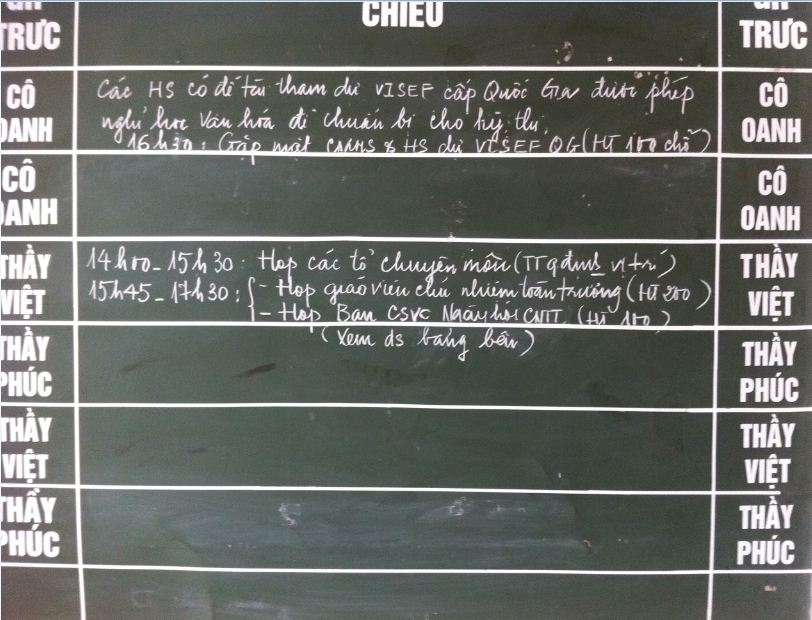 GH CHIỀU GH
TRỰC TRỰC
CÔ Các HS có đề tài tham dự VISEF cấp Quốc Gia được phép CÔ
OANH nghỉ học văn hóa để chuẩn bị cho kỳ thi OANH
16h30: Gặp mặt CMHS & HS dự VISEF QG (HT 100 chỗ)
CÔ CÔ
OANH OANH
THẦY 14h00 - 15h30: Họp các tổ chuyên môn (TT qđịnh vị trí) THẦY
VIỆT 15h45 - 17h30: { - Họp giáo viên chủ nhiệm toàn trường (HT 200) VIỆT
- Họp Ban CSVC Ngày hội CNTT (HT 100)
THẦY (Xem ds bảng bên) THẦY
PHÚC PHÚC
THẦY THẦY
VIỆT VIỆT
THẦY THẦY
PHÚC PHÚC